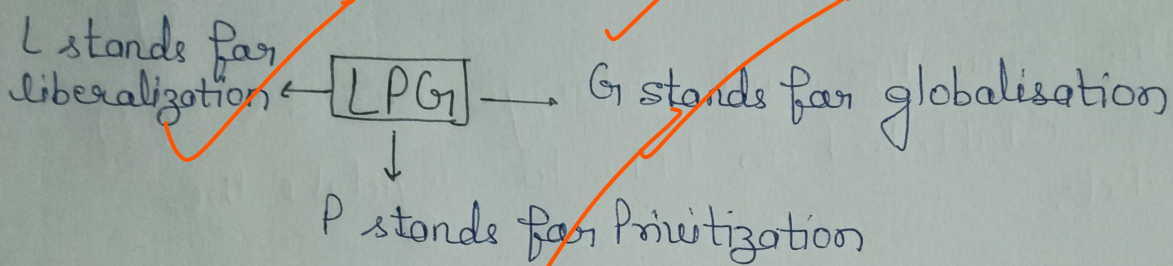 L stands for
liberalization ← LPG → G stands for globalisation
↓
P stands for Privitization